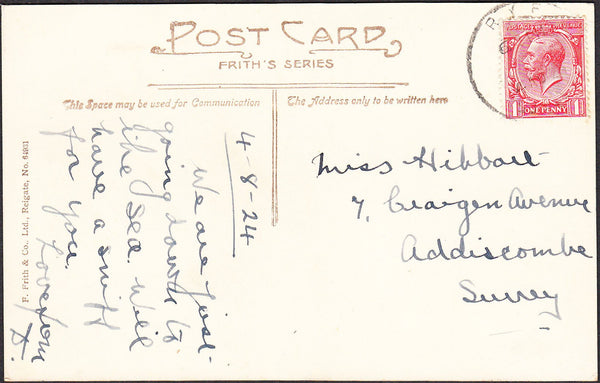 POST CARD
FRITH'S SERIES
This Space may be used for Communication
The Address only to be written here
RYE
POSTAGE REVENUE
1 ONE PENNY 1
4-8-24
We are just
going down to
the Sea. Will
have a sniff
for you.
Love from
Miss Hibbart
7, Craigen Avenue
Addiscombe
Surrey
F. Frith & Co., Ltd., Reigate, No.